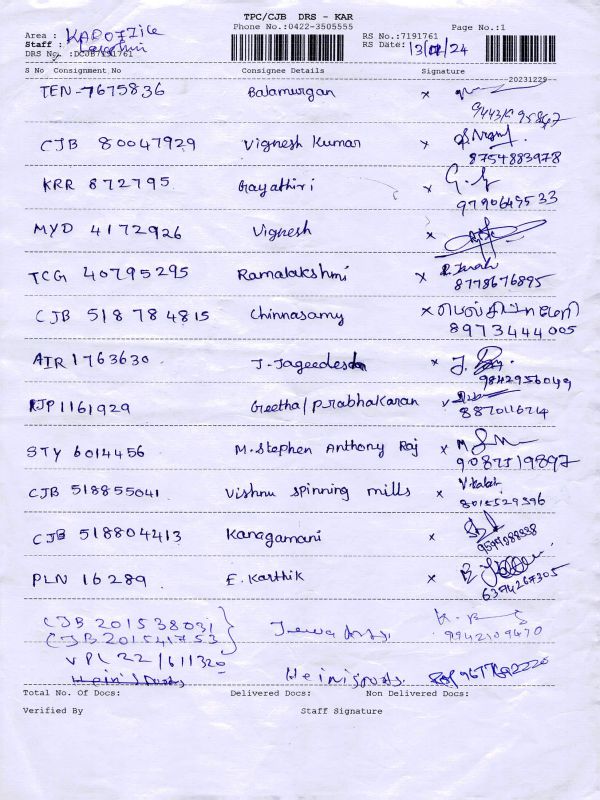 TPC/CJB DRS - KAR
Phone No.:0422-3505555 Page No.:1
Area : KAROFFICE RS No.:7191761
Staff : Lakshmi RS Date: 13/07/24
DRS No. :DCJB7191761
S No Consignment No Consignee Details Signature
20231229
TEN-7675836 Balamurgan x
CJB 80047929 Vignesh Kumar x
8754883978
KRR 872795 Gayathiri x
9790649533
MYD 4172926 Vignesh x
TCG 40795295 Ramalakshmi x
8778676895
CJB 518784815 Chinnasamy x
8973444005
AIR 1763630 J. Jageedesan x J.
9842956049
RJP1161929 Geetha/Prabhakaran
8870116714
STY 6014456 M. Stephen Anthony Raj x M
9087519897
CJB 518855041 Vishnu spinning mills x
8015529396
CJB 518804413 Kanagamani x
PLN 16289 E. Karthik x
6394267305
CJB 201538031
CJB 201541753
9942109470
VPL 22/611320
Total No. Of Docs: Delivered Docs: Non Delivered Docs:
Verified By Staff Signature